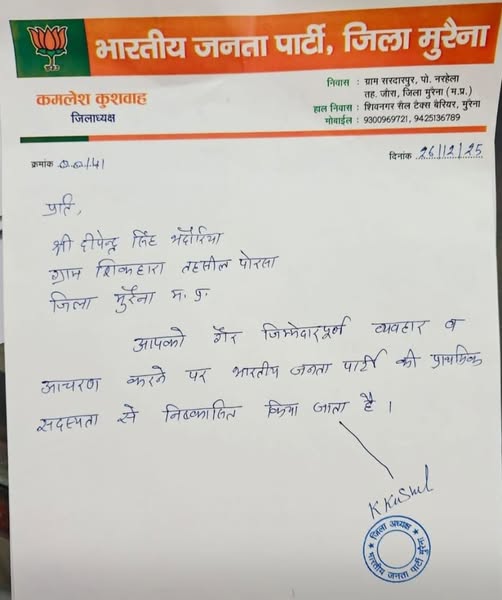 भारतीय जनता पार्टी, जिला मुरैना
कमलेश कुशवाह
जिलाध्यक्ष
निवास : ग्राम सरदारपुर, पो. नरहेला
तह. जौरा, जिला मुरैना (म.प्र.)
हाल निवास : शिवनगर सैल टैक्स बैरियर, मुरैना
मोबाईल : 9300969721, 9425136789
क्रमांक
दिनांक 26/12/25
प्रति,
श्री दीपेन्द्र सिंह भदौरिया
ग्राम सिकहारा तहसील पोरसा
जिला मुरैना म. प्र.
आपको गैर जिम्मेदारपूर्ण व्यवहार व
आचरण करने पर भारतीय जनता पार्टी की प्राथमिक
सदस्यता से निष्कासित किया जाता है ।
जिला अध्यक्ष
भारतीय जनता पार्टी मुरैना